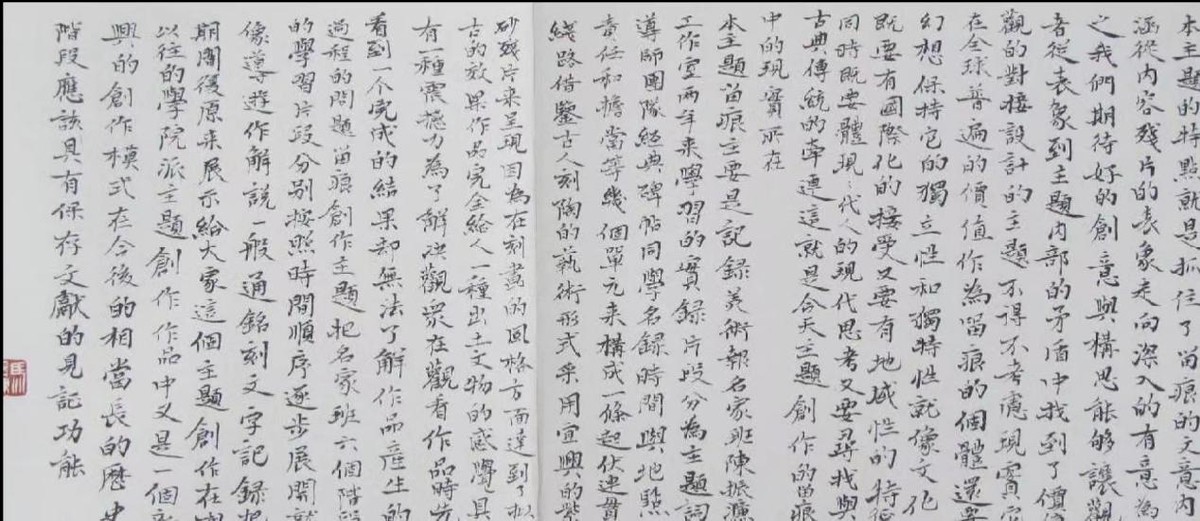 本主題的特點就是抓住了留痕的文意内
涵從内容殘片的表象走向深入的有意為
之我們期待好的創意與構思能够讓觀
者從表象到主題内部的矛盾中找到了價
觀的對接設計的主題不得不考慮現實
在全球普遍的價值作為留痕的個體還要
幻想保持它的獨立性和獨特性就像文化
既要有國際化的接受又要有地域性的特征
同時既要體現現代人的現代思考又要尋找與
古典傳統的牽連這就是今天主題創作的留痕
中的現實所在
本主題留痕主要是記録美術報名家班陳振濂
工作室兩年来學習的實録片段分為主題詞
導師團隊經典碑帖同學名録時間與地點
責任和擔當等幾個單元来構成一條起伏連貫
綫路借鑒古人刻陶的藝術形式采用宜興的紫
砂殘片来呈現因為在刻畫的風格方面達到了
古的效果作品完全給人一種出土文物的感覺具
有一種震撼力為了解决觀衆在觀看作品時先
看到一个完成的結果却無法了解作品產生的
過程的問題留痕創作主題把名家班六個階段
的學習片段分别按照時間順序逐步展開就
像導遊作解說一般通銘刻文字記録把
期間後原来展示給大家這個主題創作在
以往的學院派主題創作作品中又是一個新
興的創作模式在今後的相當長的歷史
階段應該具有保存文獻的見記功能